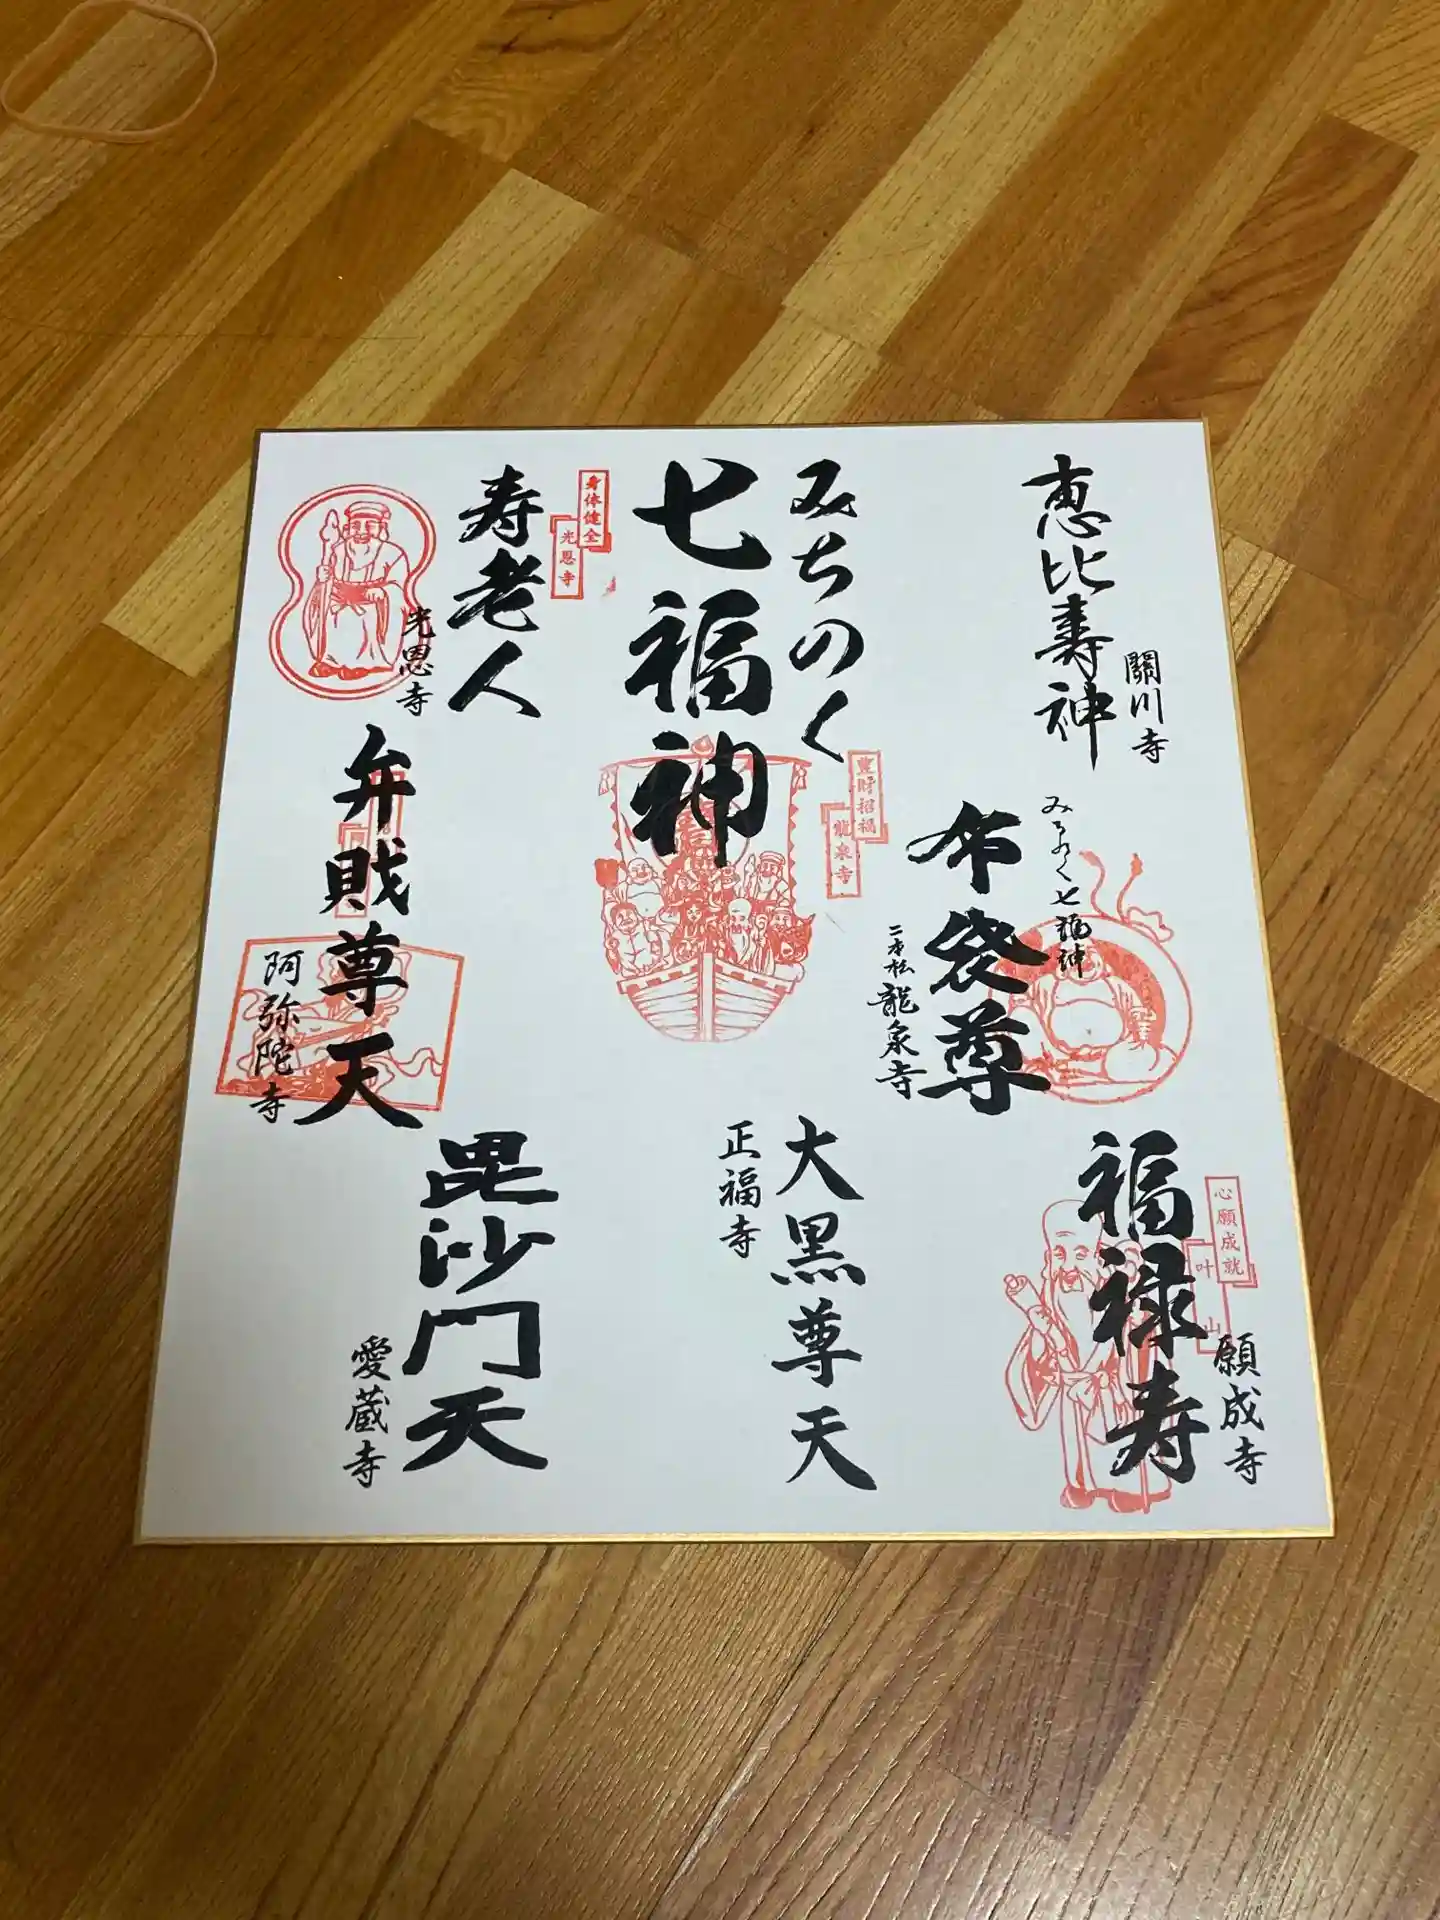 恵比壽神
關川寺
みちのく
七福神
寿老人
光恩寺
身体健全
光恩寺
豊財招福
龍泉寺
みちのく七福神
布袋尊
二本松龍泉寺
弁財尊天
阿弥陀寺
心願成就
叶
山
福禄寿
願成寺
大黒尊天
正福寺
毘沙門天
愛蔵寺